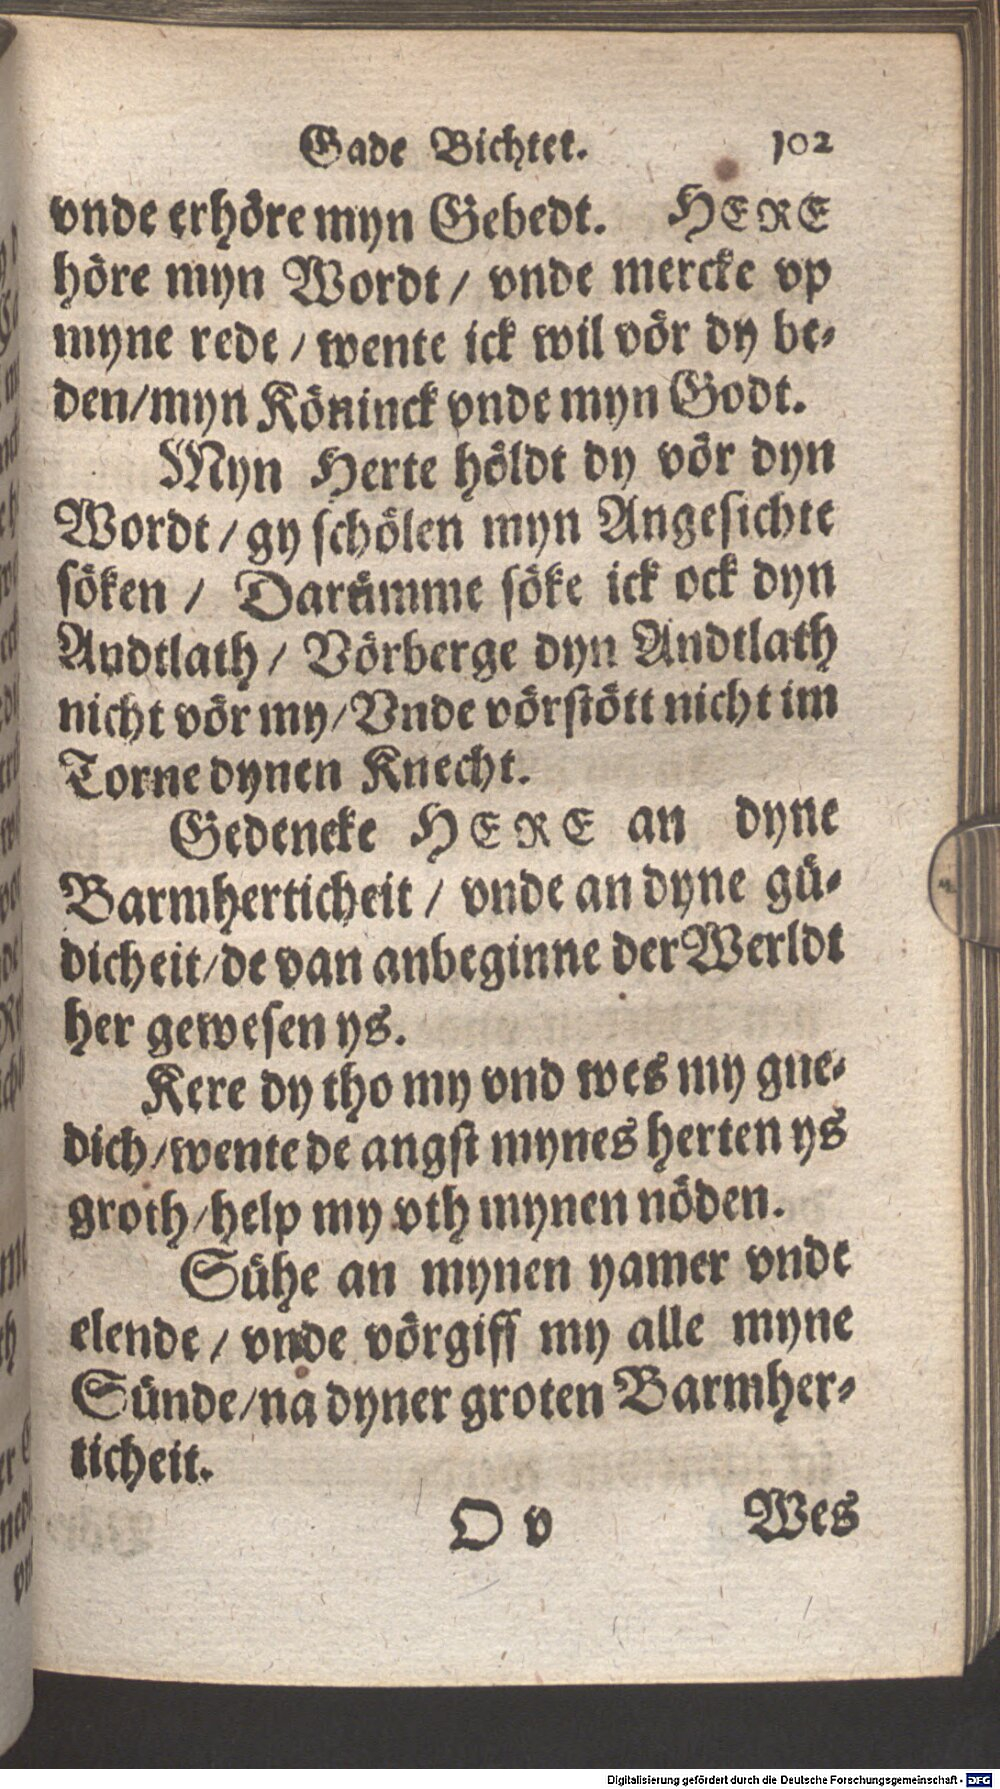 Gade Bichtet. 102
vnde erhöre myn Gebedt. HERE
höre myn Wordt / vnde mercke vp
myne rede / wente ick wil vör dy be-
den/myn Köninck vnde myn Godt.
Myn Herte höldt dy vör dyn
Wordt / gy schölen myn Angesichte
söken / Darümme söke ick ock dyn
Andtlath / Vörberge dyn Andtlath
nicht vör my/Vnde vörstött nicht im
Torne dynen Knecht.
Gedencke HERE an dyne
Barmherticheit / vnde an dyne gü-
dicheit/de van anbeginne der Werldt
her gewesen ys.
Kere dy tho my vnd wes my gne-
dich/wente de angst mynes herten ys
groth/help my vth mynen nöden.
Sühe an mynen yamer vnde
elende / vnde vörgiff my alle myne
Sünde/na dyner groten Barmher-
ticheit.
O v Wes
Digitalisierung gefördert durch die Deutsche Forschungsgemeinschaft - DFG